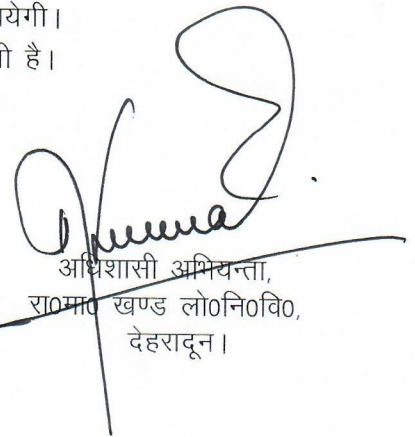 येगी।
ी है।
अधिशासी अभियन्ता,
रा0मा0 खण्ड लो0नि0वि0,
देहरादून।